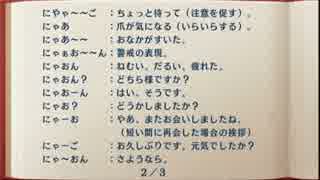 にやゃ～～ご　：ちょっと待って（注意を促す）。
にゃあ　：爪が気になる（いらいらする）。
にゃあ～～　：おなかがすいた。
にゃぁお～～ん：警戒の表現。
にゃおん　：ねむい、だるい、疲れた。
にゃおん？　：どちら様ですか？
にゃおーん　：はい、そうです。
にゃお？　：どうかしましたか？
にゃーお　：やあ、またお会いしましたね。
（短い間に再会した場合の挨拶）
にゃーご　：お久しぶりです、元気でしたか？
にゃ～おん　：さようなら。
2／3